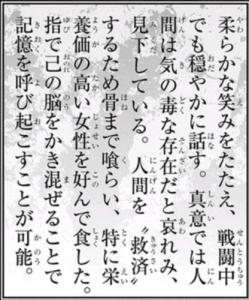 柔らかな笑みをたたえ、戦闘中
でも穏やかに話す。真意では人
間は気の毒な存在だと哀れみ、
見下している。人間を〝救済〟
するため骨まで喰らい、特に栄
養価の高い女性を好んで食した。
指で己の脳をかき混ぜることで
記憶を呼び起こすことが可能。